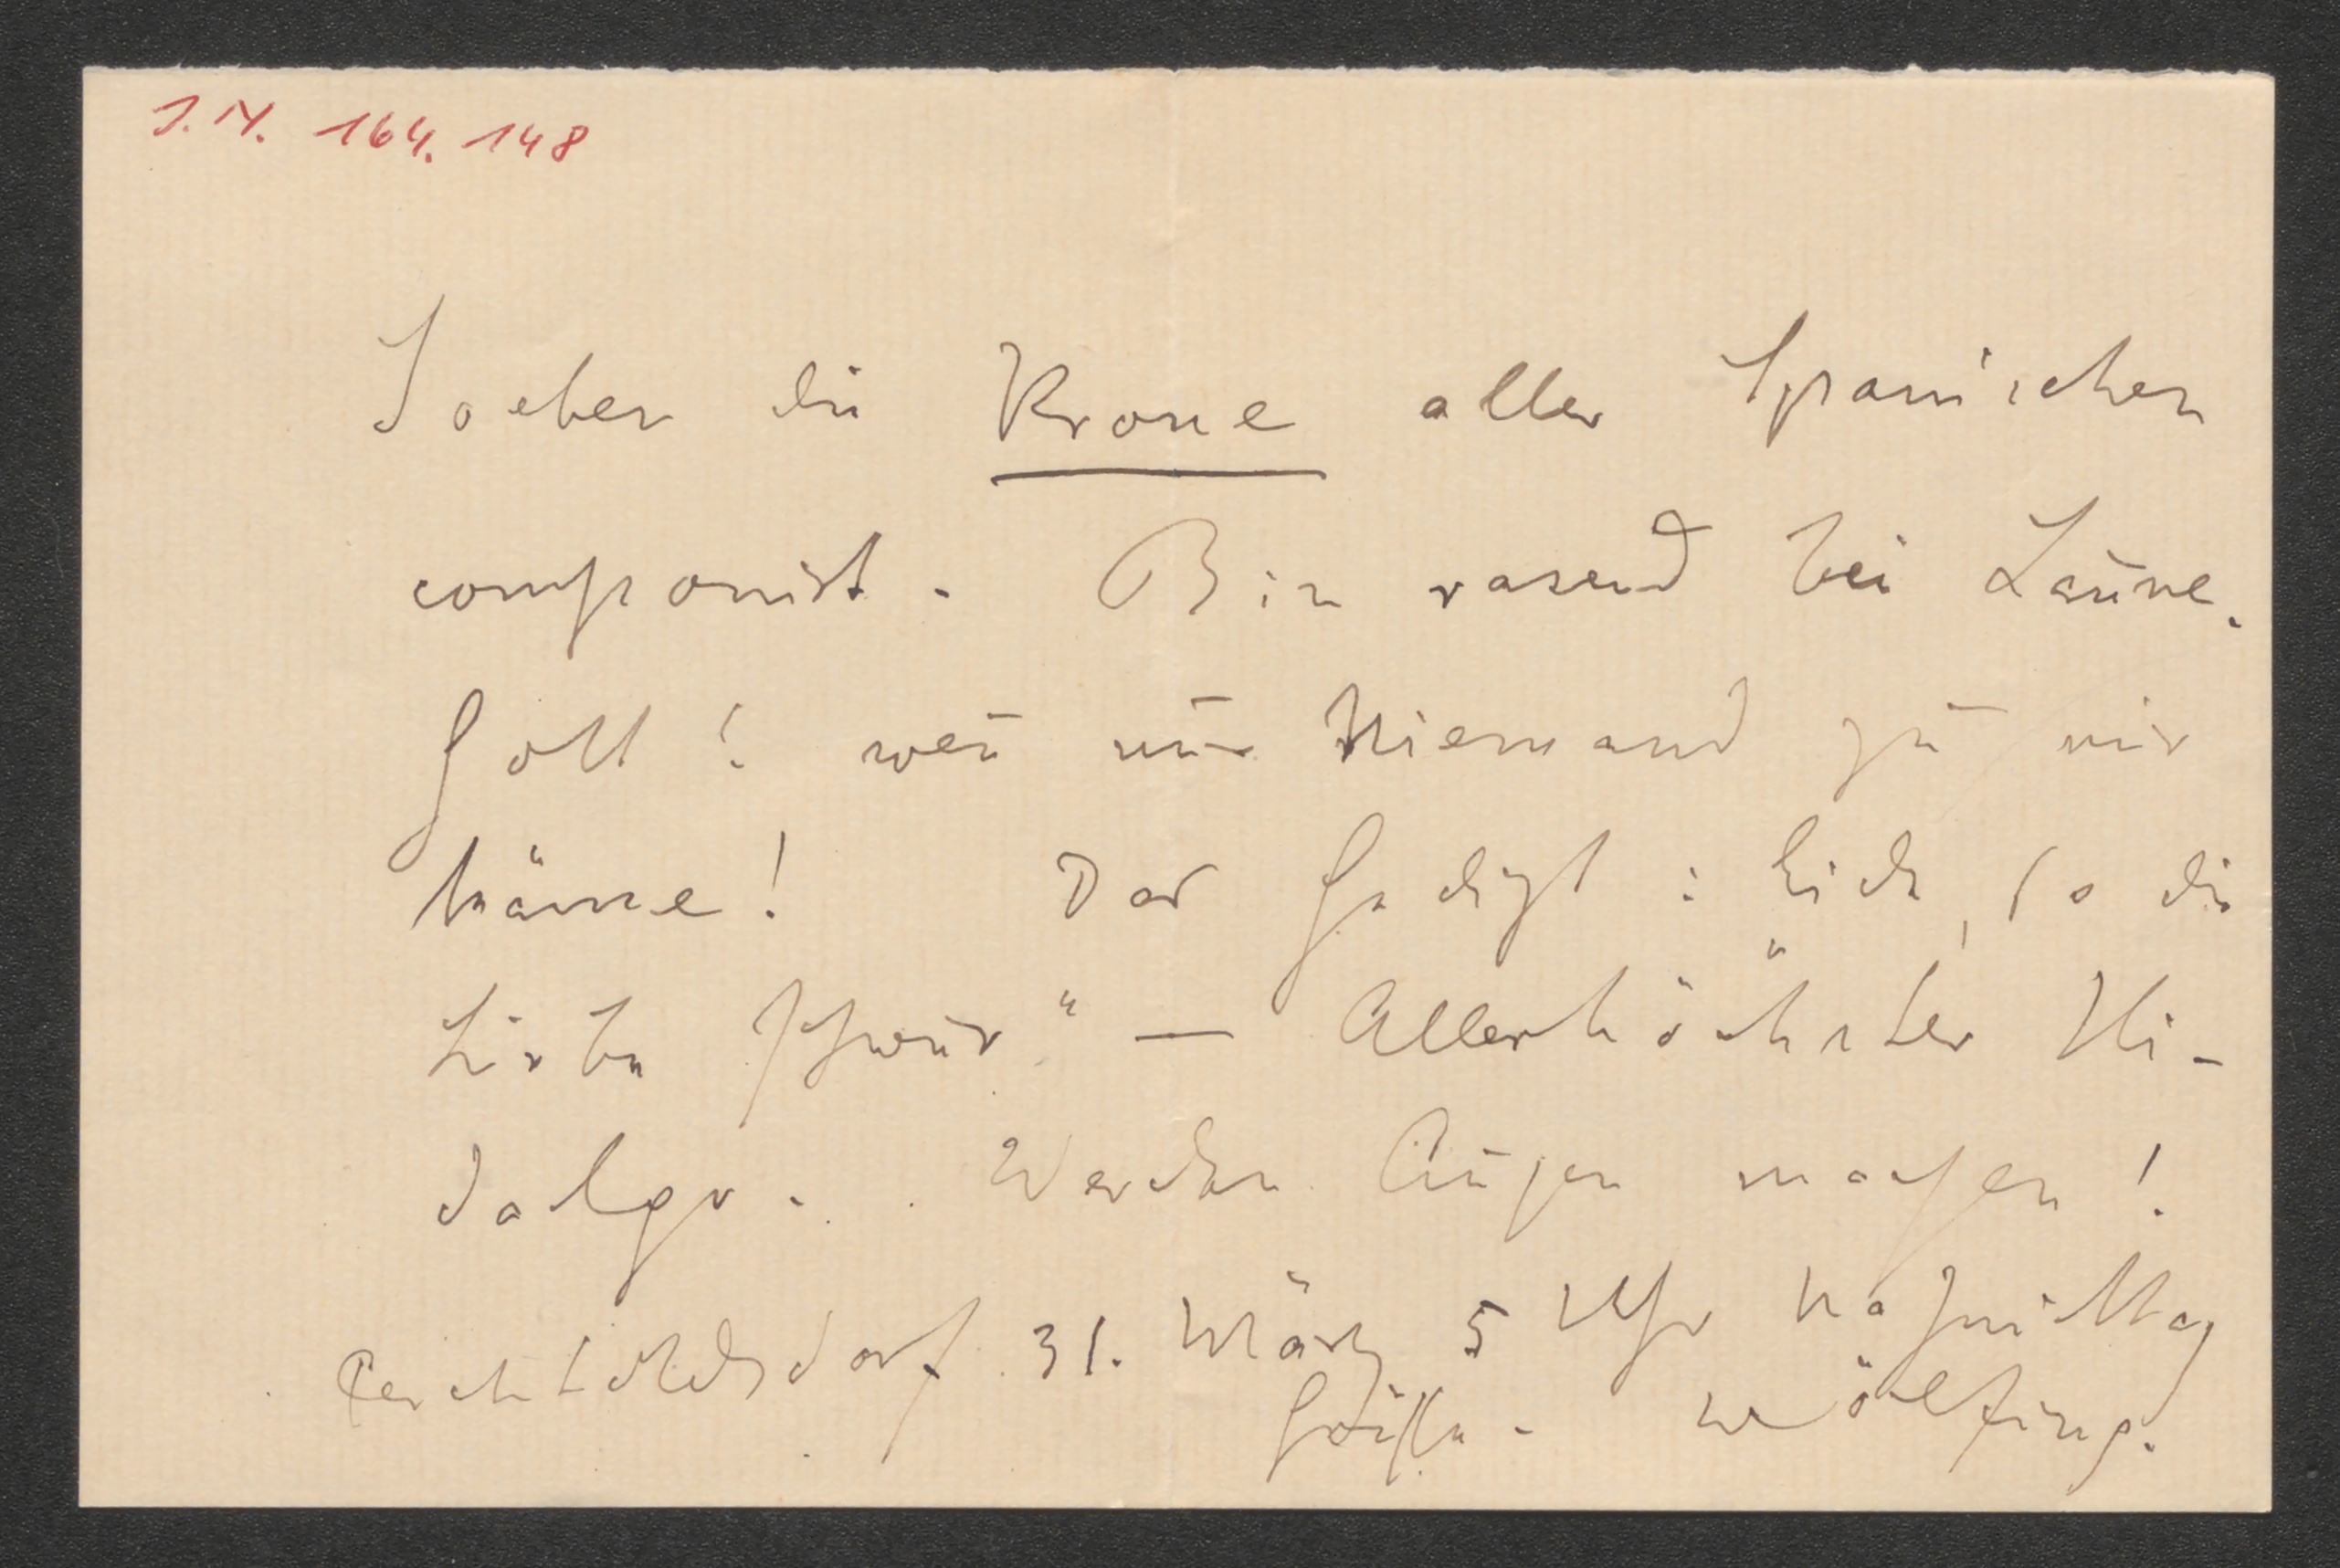 J. N. 164.148
Soeben die Krone aller Spanischen
componirt. Bin rasend bei Laune.
Gott! weñ nur Niemand zu mir
käme! Das Gedicht: Eide, so die
Liebe schwur" — Allerhöchster Hi-
dalgo. Werden Augen machen!
Perchtoldsdorf 31. März 5 Uhr Nachmittag
Grüße. Wölfing.